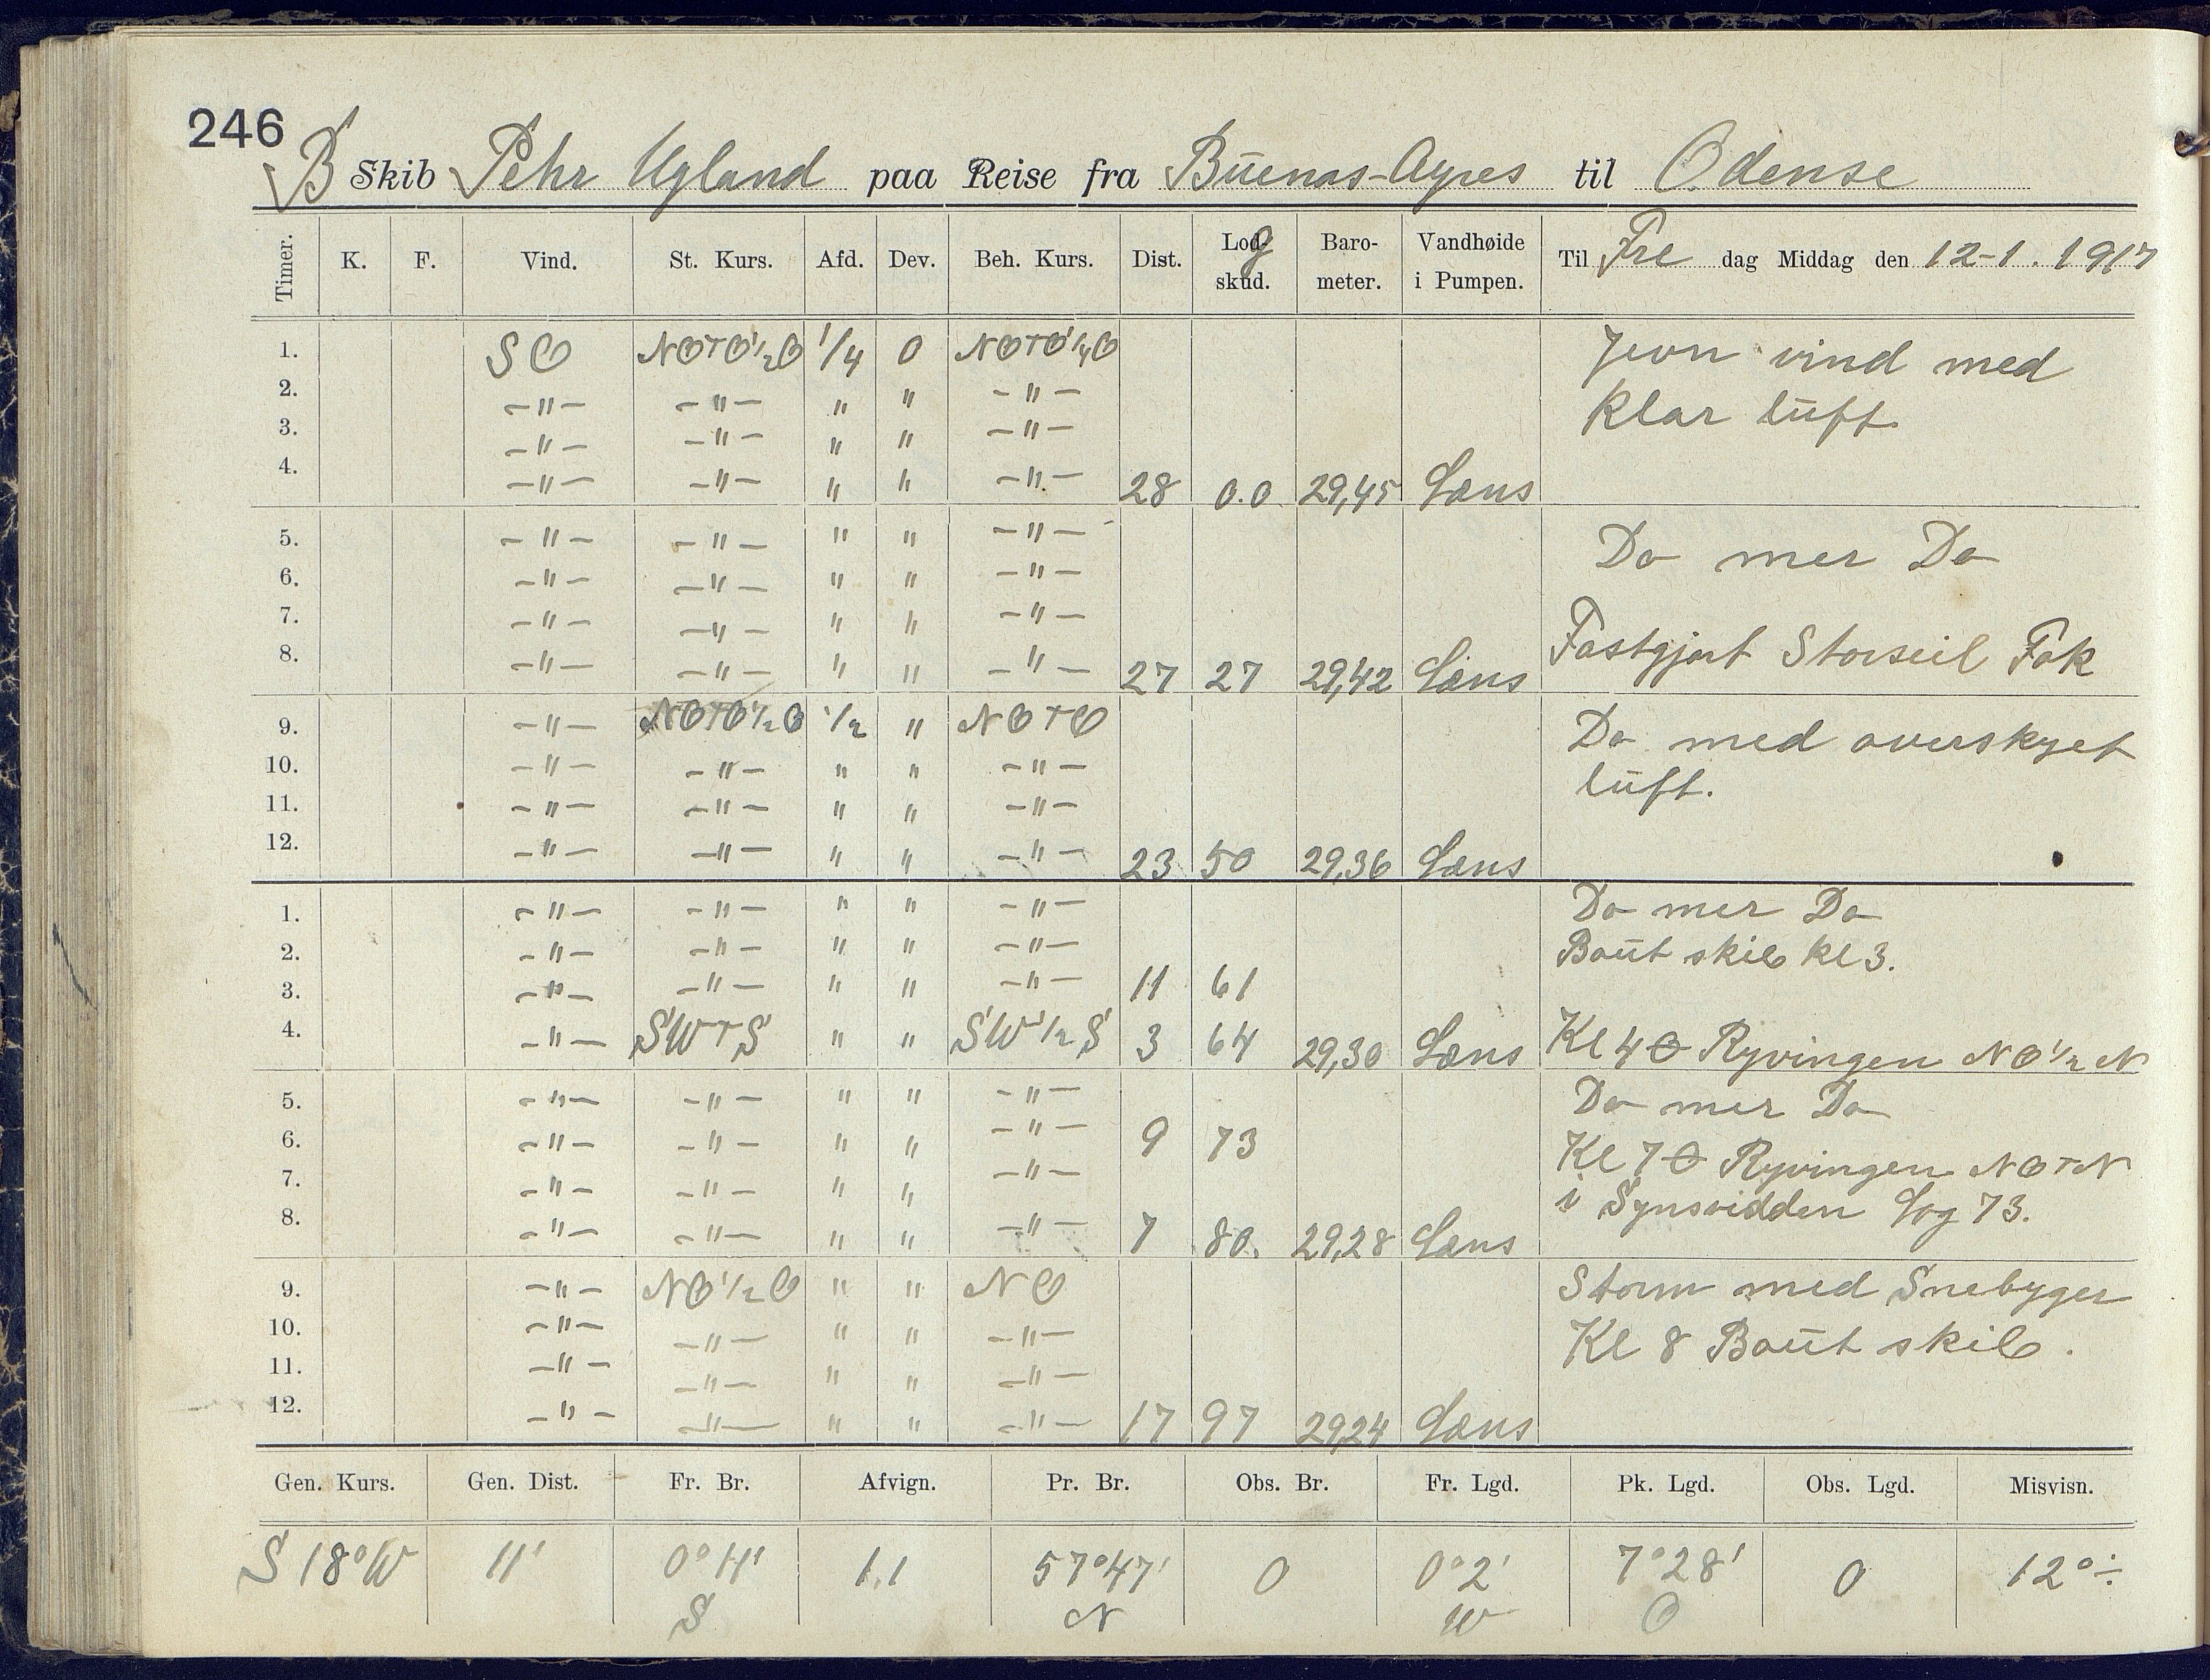 246
B Skib Pehr Ugland paa Reise fra Buenos-Ayres til Odense
Timer. K. F. Vind. St. Kurs. Afd. Dev. Beh. Kurs. Dist. Lod-g skud. Baro-meter. Vandhøide i Pumpen. Til Fre dag Middag den 12-1. 1917
1. SO NOTO1/2O 1/4 0 NOTO1/4O Jevn vind med
2. -"- -"- " " -"- Klar luft.
3. -"- -"- " " -"-
4. -"- -"- " " -"- 28 0.0 29,45 Læns
5. -"- -"- " " -"- Do mer Do
6. -"- -"- " " -"-
7. -"- -"- " " -"- Fastgjort Storseil Fok
8. -"- -"- " " -"- 27 27 29,42 Læns
9. -"- NOTO1/2O 1/2 " NOTO Do med overskyet
10. -"- -"- " " -"- luft.
11. -"- -"- " " -"-
12. -"- -"- " " -"- 23 50 29,36 Læns
1. -"- -"- " " -"- Do mer Do
2. -"- -"- " " -"- Baut skib kl 3.
3. -"- -"- " " -"- 11 61
4. -"- SWTS " " SW1/2S 3 64 29,30 Læns Kl 4 Ryvingen NO1/2N
5. -"- -"- " " -"- Do mer Do
6. -"- -"- " " -"- 9 73 Kl 7 Ryvingen NOTN
7. -"- -"- " " -"- i Synsvidden Log 73.
8. -"- -"- " " -"- 7 80. 29,28 Læns
9. -"- NO1/2O " " NO Storm med Snebyger
10. -"- -"- " " -"- Kl 8 Baut skib.
11. -"- -"- " " -"-
12. -"- -"- " " -"- 17 97 29,24 Læns
Gen. Kurs. Gen. Dist. Fr. Br. Afvign. Pr. Br. Obs. Br. Fr. Lgd. Pk. Lgd. Obs. Lgd. Misvisn.
S 18° W 11' 0° 11' S 1,1 57° 47' N 0 0° 2' W 7° 28' O 0 12° ÷